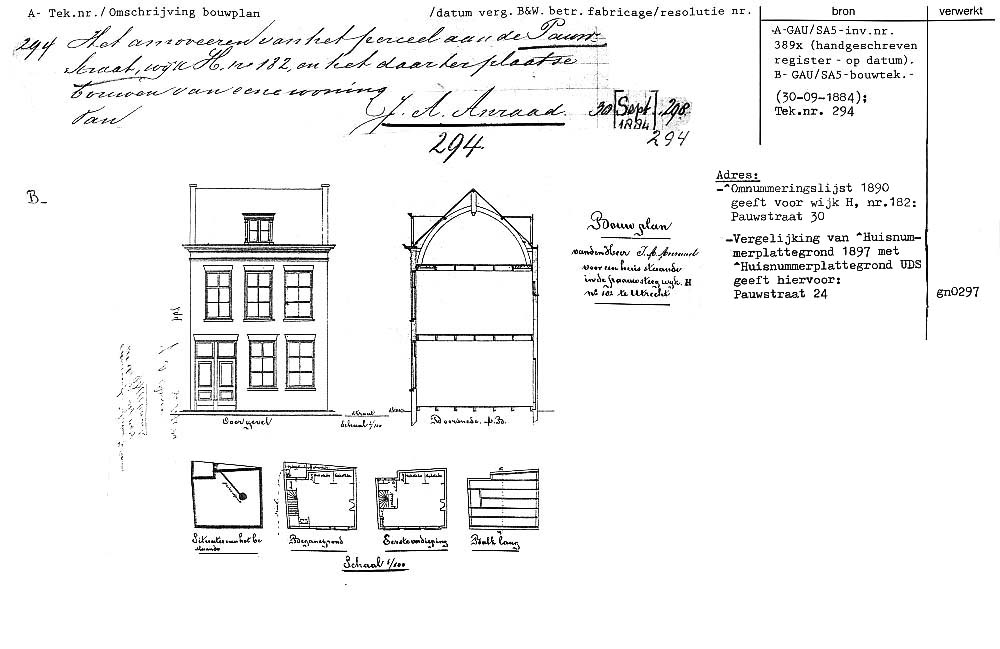 A- Tek.nr./Omschrijving bouwplan /datum verg. B&W. betr. fabricage/resolutie nr. bron verwerkt
294 Het amoveeren van het perceel aan de Pauw-
straat, wijk H. no 182, en het daar ter plaatse
bouwen van eene woning
Van J. A. Anraad. 30 [Sept. 1884] 298
294
294
A-GAU/SA5-inv.nr.
389x (handgeschreven
register - op datum).
B- GAU/SA5-bouwtek.-
(30-09-1884);
Tek.nr. 294
B-
Adres:
-^Omnummeringslijst 1890
geeft voor wijk H, nr.182:
Pauwstraat 30
-Vergelijking van ^Huisnum-
merplattegrond 1897 met
^Huisnummerplattegrond UDS
geeft hiervoor:
Pauwstraat 24
gn0297
Bouwplan
van den Heer J. A.
voor een huis staande
in de wijk H
no 182 te Utrecht
Voorgevel
straat
Schaal 1/100
Doorsnede
Situatie van het be
staande
Beganegrond
Eersteverdieping
Balklaag
Schaal 1/100